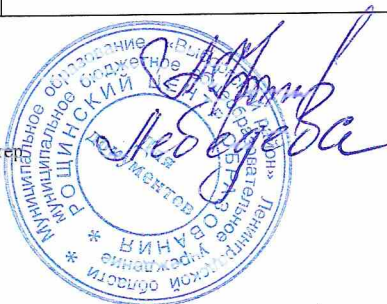 Муниципальное образование «Выборгский район» Ленинградской области
муниципальное бюджетное общеобразовательное учреждение
* РОЩИНСКИЙ ЦЕНТР ОБРАЗОВАНИЯ *
Для
документов
Лебедева